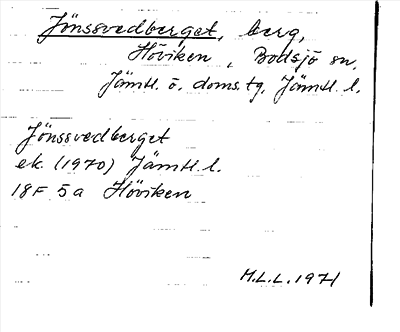 Jönssvedberget, berg,
Höviken, Bodsjö sn.
Jämtl. ö. doms. tg. Jämtl. l.
Jönssvedberget
ek. (1970) Jämtl. l.
18F 5a Höviken
M.L.L. 1971